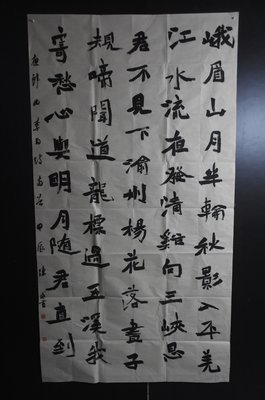 峨眉山月半輪秋影入平羌
江水流夜發清谿向三峽思
君不見下渝州楊花落盡子
規啼聞道龍標過五溪我
寄愁心與明月隨君直到
夜郎西 李白詩 甲辰 陳